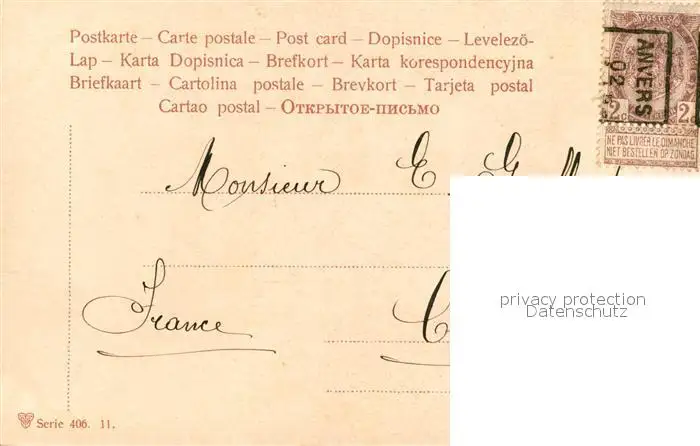 Postkarte – Carte postale – Post card – Dopisnice – Levelező-
Lap – Karta Dopisnica – Brefkort – Karta korespondencyjna
Briefkaart – Cartolina postale – Brevkort – Tarjeta postal
Cartao postal – Открытое-письмо
POSTES
ANVERS
02
2 2
NE PAS LIVRER LE DIMANCHE
NIET BESTELLEN OP ZONDAG
Monsieur E.
France
privacy protection
Datenschutz
Serie 406. 11.